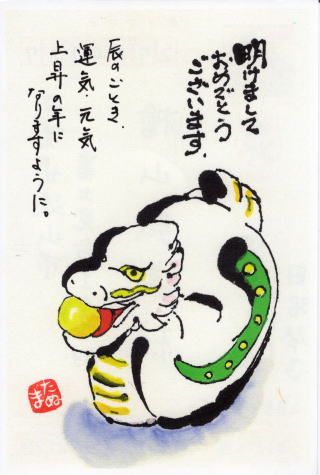 明けまして
おめでとう
ございます。
辰のごとき、
運気・元気
上昇の年に
なりますように。
たぬま